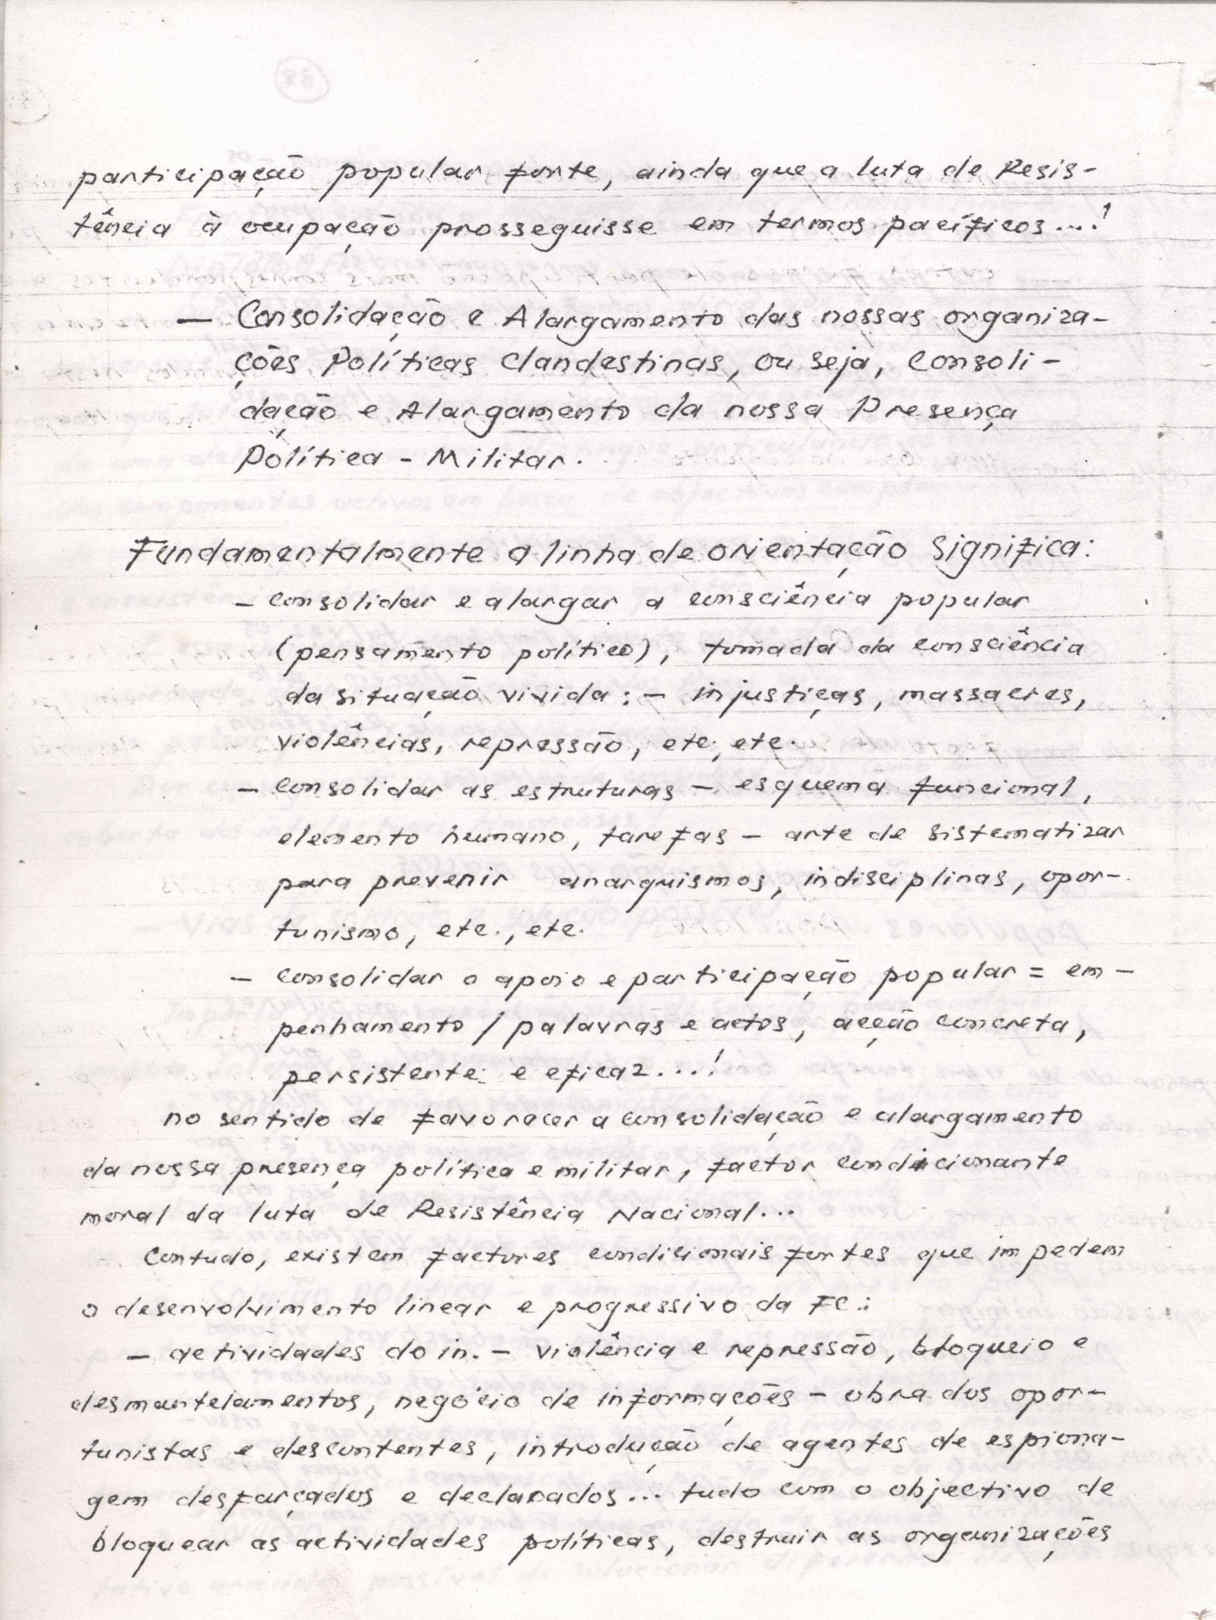 participação popular forte, ainda que a luta de Resis-
tência à ocupação prosseguisse em termos pacíficos...!
— Consolidação e Alargamento das nossas organiza-
ções Políticas Clandestinas, ou seja, Consoli-
dação e Alargamento da nossa Presença
Política - Militar.
Fundamentalmente a linha de orientação significa:
- consolidar e alargar a consciência popular
(pensamento político), tomada da consciência
da situação vivida: - injustiças, massacres,
violências, repressão, etc., etc.
- consolidar as estruturas - esquema funcional,
elemento humano, tarefas - arte de sistematizar
para prevenir anarquismos, indisciplinas, opor-
tunismo, etc., etc.
- consolidar o apoio e participação popular = em-
penhamento / palavras e actos, acção concreta,
persistente e eficaz...!
no sentido de favorecer a consolidação e alargamento
da nossa presença política e militar, factor condicionante
moral da luta de Resistência Nacional...
Contudo, existem factores condicionais fortes que impedem
o desenvolvimento linear e progressivo da FC.:
- actividades do in. - violência e repressão, bloqueio e
desmantelamentos, negócio de informações - obra dos opor-
tunistas e descontentes, introdução de agentes de espiona-
gem desfarçados e declarados... tudo com o objectivo de
bloquear as actividades políticas, destruir as organizações